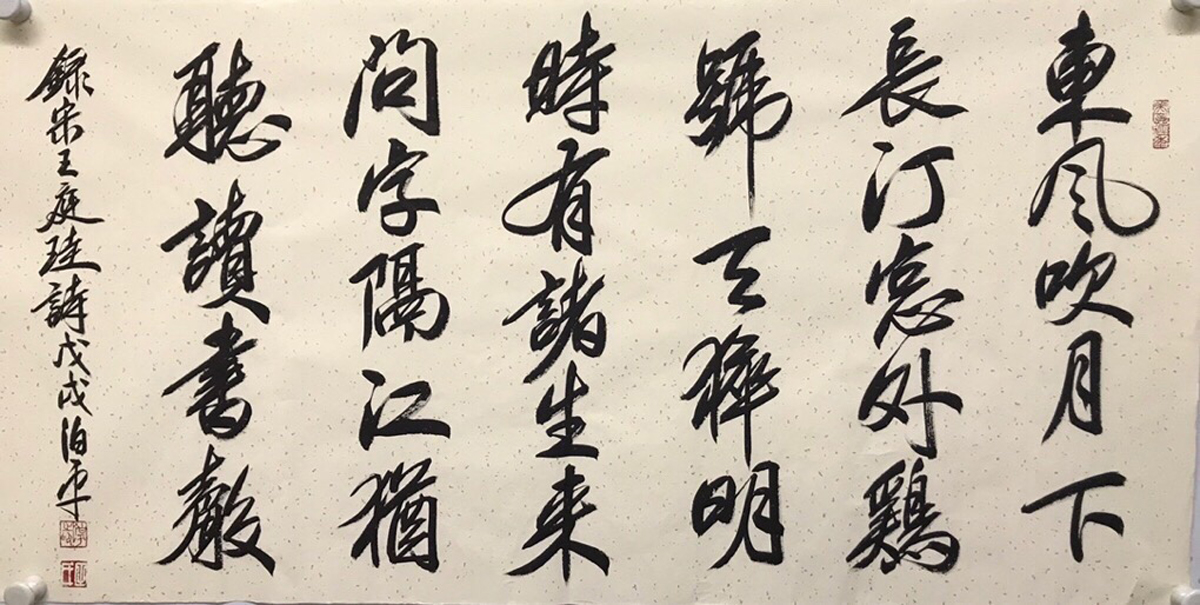 東風吹月下
長汀窓外鷄
號天明
時有諸生來
問字隔江猶
聽讀書聲
錄宋王庭珪詩戊戌泊平